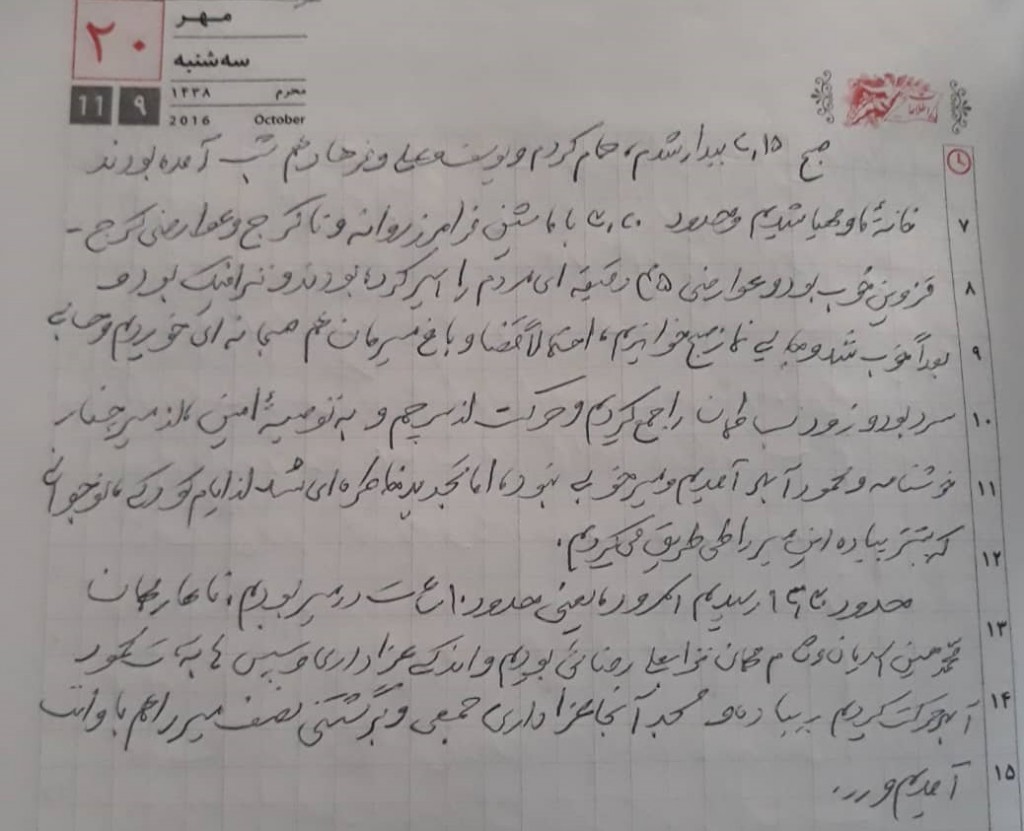 مهر
۲۰
سه‌شنبه
محرم ۱۴۳۸ ۹
October 2016 11
صبح ۷,۱۵ بیدار شدم، حمام کردم و یوسف و علی و زهرا هم شب آمده بودند
۷ خانهٔ ما و مهیا شدیم و حدود با ماشین فرامرز روانه و تا کرج و عوارضی کرج -
۸ قزوین خوب بود و عوارضی ۴۵ دقیقه ای مردم را اسیر کرده بودند و ترافیک بود و
۹ بعداً خوب شد و جایی نماز صبح خواندیم، احتمالاً قضا و باغ مسیرمان هم صبحانه ای خوردیم و جایی
۱۰ سرد بود و زود بساطمان را جمع کردیم و حرکت از سرچم و به توصیهٔ امین، از مسیر چنار
۱۱ خوشنامه و محمودآباد آمدیم و مسیر خوبی نبود، اما تجدید خاطره ای شد از ایام کودکی، نوجوانی
۱۲ که بیشتر پیاده این مسیر را طی طریق می کردیم.
حدود رسیدیم یعنی حدود ۱۰ ساعت در مسیر بودیم. ناهار مهمان
۱۳ محمدحسین و شام مهمان رضائی بودیم و اندکی عزاداری و سپس به سمت
۱۴ حرکت کردیم مسجد آنجا عزاداری جمعی و برگشتنی نصف مسیر را هم با وانت
۱۵ آمدیم و ...